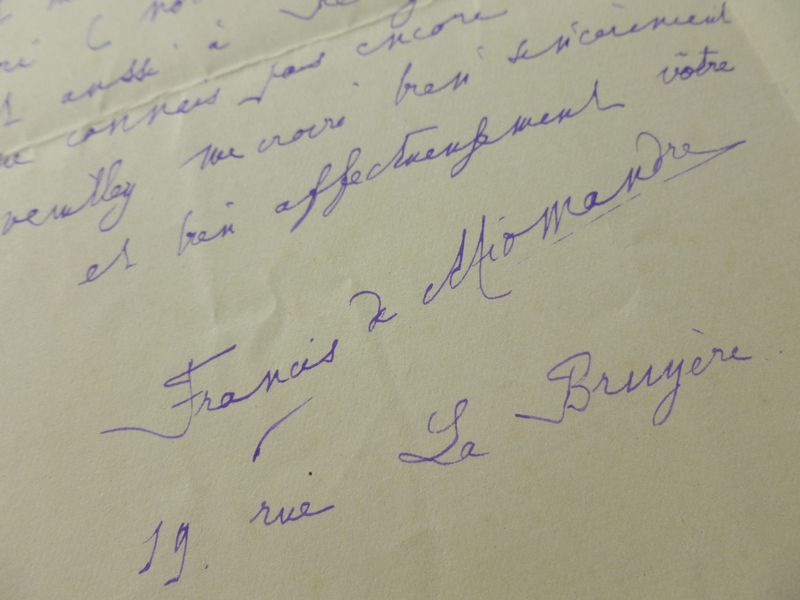 aussi à
ne connais pas encore
veuillez me croire bien sincèrement
et bien affectueusement vôtre
Francis de Miomandre
19. rue La Bruyère